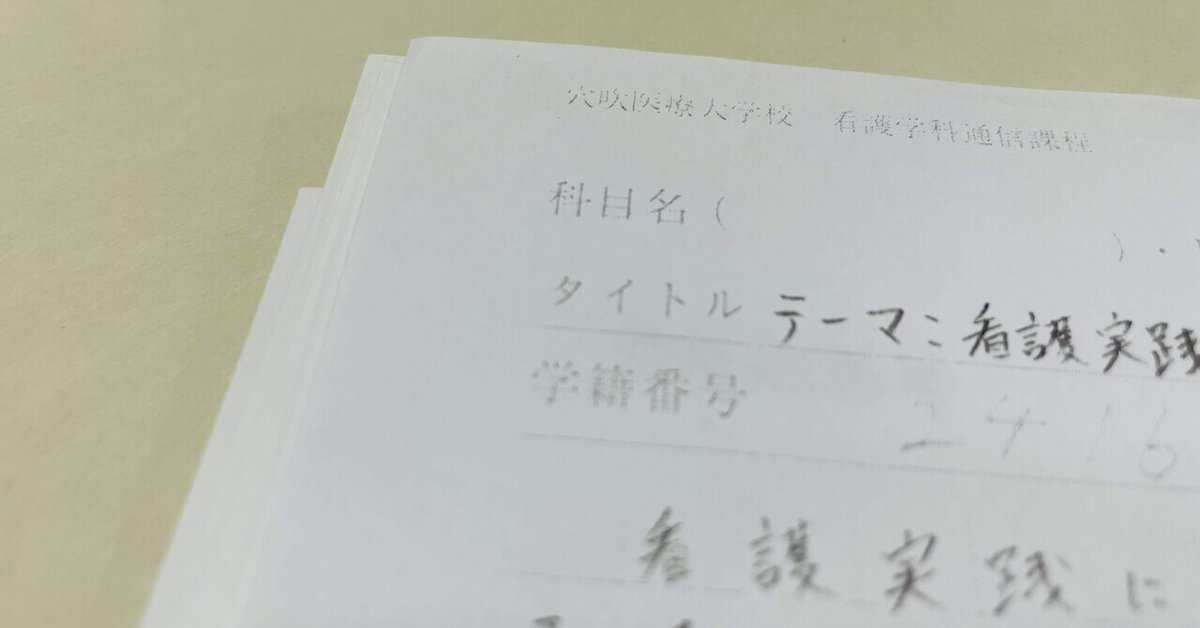 穴吹医療大学校 看護学科通信課程
科目名（ ）・
タイトル テーマ：看護実践
学籍番号 2416
看護実践に